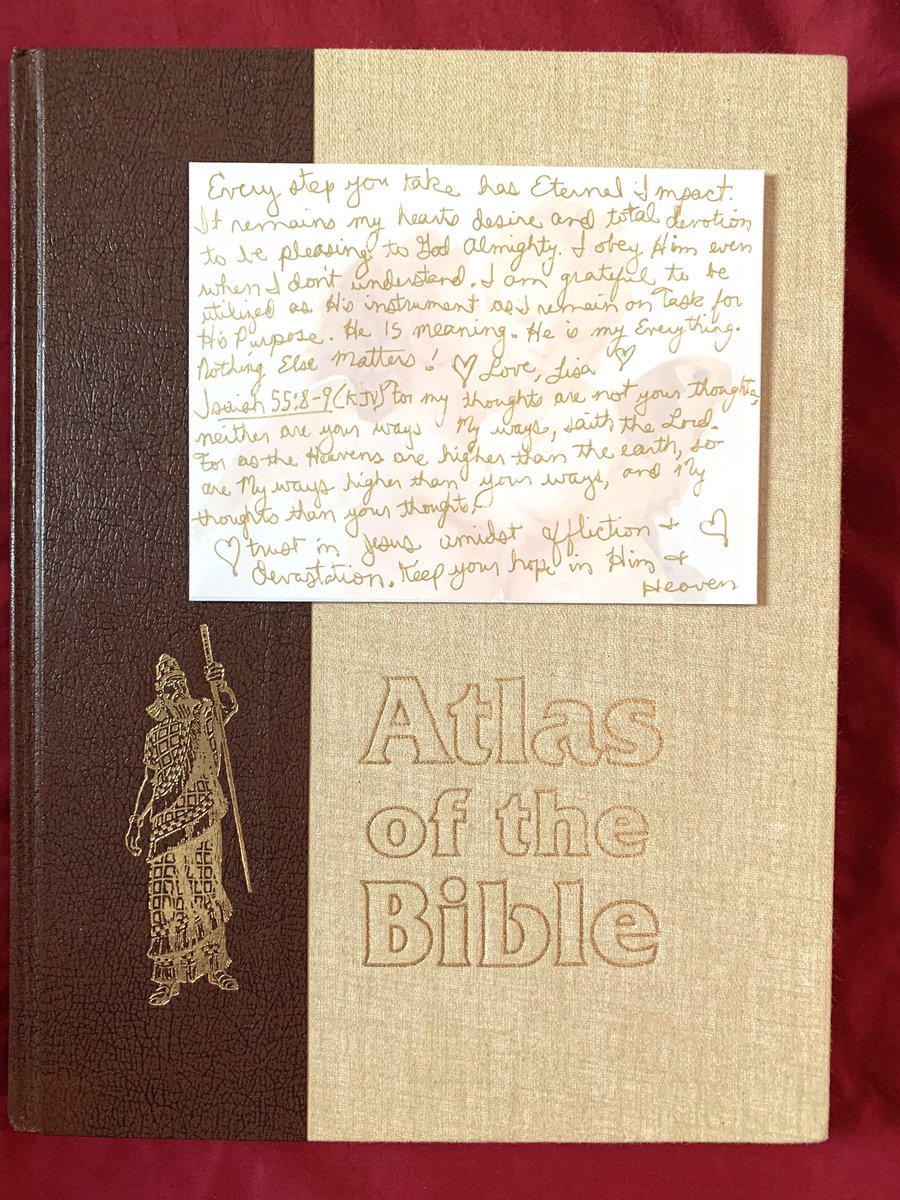 Every step you take has Eternal Impact.
It remains my hearts desire and total devotion
to be pleasing to God Almighty. I obey Him even
when I don't understand. I am grateful to be
utilized as His instrument as I remain on Task for
His Purpose. He IS meaning. He is my Everything.
Nothing Else Matters! ♡ Love, Lisa ♡
Isaiah 55:8-9 (KJV) For my thoughts are not your thoughts,
neither are your ways My ways, saith the Lord.
For as the Heavens are higher than the earth, so
are My ways higher than your ways, and My
thoughts than your thoughts.
♡ trust in Jesus amidst affliction & ♡
devastation. Keep your hope in Him &
Heaven
Atlas
of the
Bible